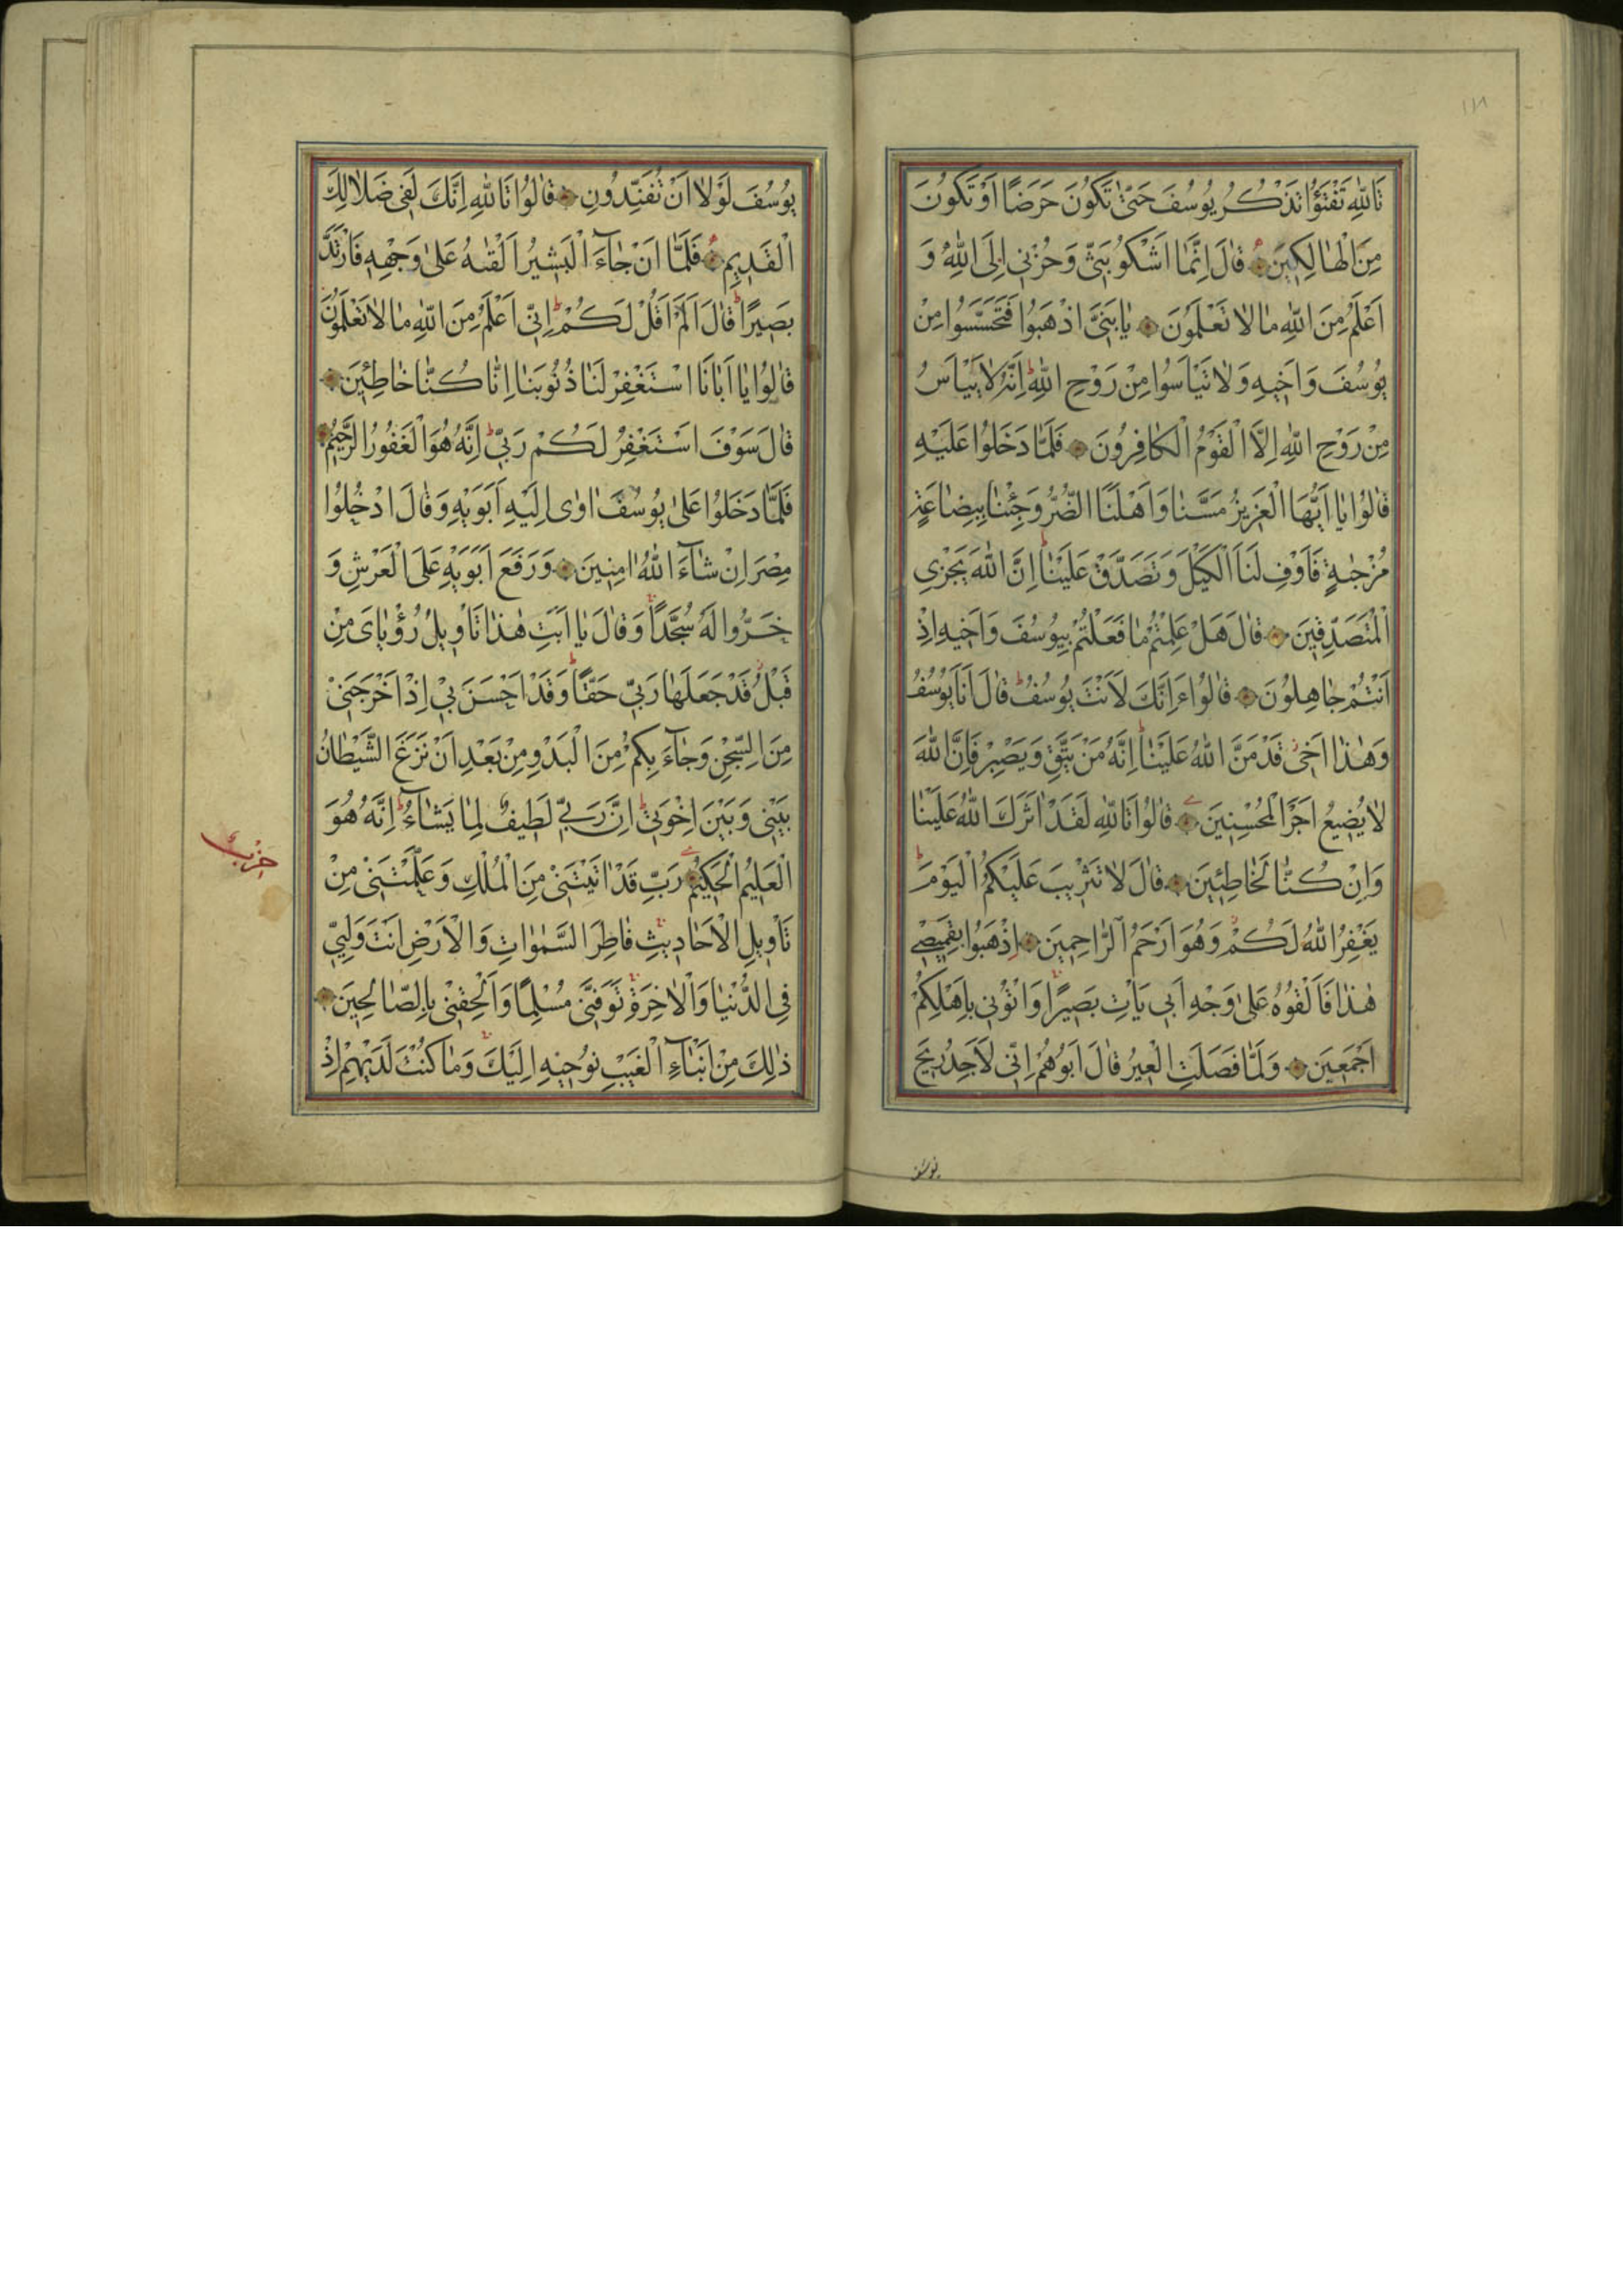 ١١٨
تَاللّٰهِ تَفْتَؤُا تَذْكُرُ يُوسُفَ حَتّٰى تَكُونَ حَرَضًا اَوْ تَكُونَ
مِنَ الْهَالِكِينَ قَالَ اِنَّمَا اَشْكُو بَثّٖى وَحُزْنٖى اِلَى اللّٰهِ وَ
اَعْلَمُ مِنَ اللّٰهِ مَا لَا تَعْلَمُونَ يَا بَنِىَّ اذْهَبُوا فَتَحَسَّسُوا مِنْ
يُوسُفَ وَاَخٖيهِ وَلَا تَيْاَسُوا مِنْ رَوْحِ اللّٰهِ اِنَّهُ لَا يَيْاَسُ
مِنْ رَوْحِ اللّٰهِ اِلَّا الْقَوْمُ الْكَافِرُونَ فَلَمَّا دَخَلُوا عَلَيْهِ
قَالُوا يَا اَيُّهَا الْعَزٖيزُ مَسَّنَا وَاَهْلَنَا الضُّرُّ وَجِئْنَا بِبِضَاعَةٍ
مُزْجٰيةٍ فَاَوْفِ لَنَا الْكَيْلَ وَتَصَدَّقْ عَلَيْنَا اِنَّ اللّٰهَ يَجْزِى
الْمُتَصَدِّقٖينَ قَالَ هَلْ عَلِمْتُمْ مَا فَعَلْتُمْ بِيُوسُفَ وَاَخٖيهِ اِذْ
اَنْتُمْ جَاهِلُونَ قَالُوا ءَاِنَّكَ لَاَنْتَ يُوسُفُ قَالَ اَنَا يُوسُفُ
وَهٰذَا اَخٖى قَدْ مَنَّ اللّٰهُ عَلَيْنَا اِنَّهُ مَنْ يَتَّقِ وَيَصْبِرْ فَاِنَّ اللّٰهَ
لَا يُضٖيعُ اَجْرَ الْمُحْسِنٖينَ قَالُوا تَاللّٰهِ لَقَدْ اٰثَرَكَ اللّٰهُ عَلَيْنَا
وَاِنْ كُنَّا لَخَاطِئٖينَ قَالَ لَا تَثْرٖيبَ عَلَيْكُمُ الْيَوْمَ
يَغْفِرُ اللّٰهُ لَكُمْ وَهُوَ اَرْحَمُ الرَّاحِمٖينَ اِذْهَبُوا بِقَمٖيصٖى
هٰذَا فَاَلْقُوهُ عَلٰى وَجْهِ اَبٖى يَاْتِ بَصٖيرًا وَاْتُونٖى بِاَهْلِكُمْ
اَجْمَعٖينَ وَلَمَّا فَصَلَتِ الْعٖيرُ قَالَ اَبُوهُمْ اِنّٖى لَاَجِدُ رٖيحَ
يوسف
يُوسُفَ لَوْلَا اَنْ تُفَنِّدُونِ قَالُوا تَاللّٰهِ اِنَّكَ لَفٖى ضَلَالِكَ
الْقَدٖيمِ فَلَمَّا اَنْ جَاءَ الْبَشٖيرُ اَلْقٰيهُ عَلٰى وَجْهِهٖ فَارْتَدَّ
بَصٖيرًا قَالَ اَلَمْ اَقُلْ لَكُمْ اِنّٖى اَعْلَمُ مِنَ اللّٰهِ مَا لَا تَعْلَمُونَ
قَالُوا يَا اَبَانَا اسْتَغْفِرْ لَنَا ذُنُوبَنَا اِنَّا كُنَّا خَاطِئٖينَ
قَالَ سَوْفَ اَسْتَغْفِرُ لَكُمْ رَبّٖى اِنَّهُ هُوَ الْغَفُورُ الرَّحٖيمُ
فَلَمَّا دَخَلُوا عَلٰى يُوسُفَ اٰوٰى اِلَيْهِ اَبَوَيْهِ وَقَالَ ادْخُلُوا
مِصْرَ اِنْ شَاءَ اللّٰهُ اٰمِنٖينَ وَرَفَعَ اَبَوَيْهِ عَلَى الْعَرْشِ وَ
خَرُّوا لَهُ سُجَّدًا وَقَالَ يَا اَبَتِ هٰذَا تَاْوٖيلُ رُؤْيَاىَ مِنْ
قَبْلُ قَدْ جَعَلَهَا رَبّٖى حَقًّا وَقَدْ اَحْسَنَ بٖى اِذْ اَخْرَجَنٖى
مِنَ السِّجْنِ وَجَاءَ بِكُمْ مِنَ الْبَدْوِ مِنْ بَعْدِ اَنْ نَزَغَ الشَّيْطَانُ
بَيْنٖى وَبَيْنَ اِخْوَتٖى اِنَّ رَبّٖى لَطٖيفٌ لِمَا يَشَاءُ اِنَّهُ هُوَ
الْعَلٖيمُ الْحَكٖيمُ رَبِّ قَدْ اٰتَيْتَنٖى مِنَ الْمُلْكِ وَعَلَّمْتَنٖى مِنْ
حزب
تَاْوٖيلِ الْاَحَادٖيثِ فَاطِرَ السَّمٰوَاتِ وَالْاَرْضِ اَنْتَ وَلِيّٖى
فِى الدُّنْيَا وَالْاٰخِرَةِ تَوَفَّنٖى مُسْلِمًا وَاَلْحِقْنٖى بِالصَّالِحٖينَ
ذٰلِكَ مِنْ اَنْبَاءِ الْغَيْبِ نُوحٖيهِ اِلَيْكَ وَمَا كُنْتَ لَدَيْهِمْ اِذْ